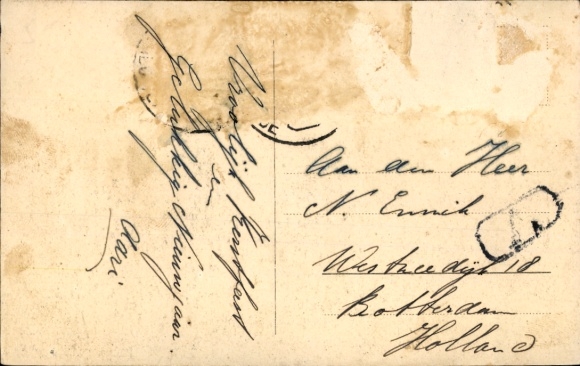 Vroolijk Kerstfeest
en
Gelukkig Nieuwjaar.
Aari
Aan den Heer
N. Ennik
Westzeedijk 18
Rotterdam
Holland